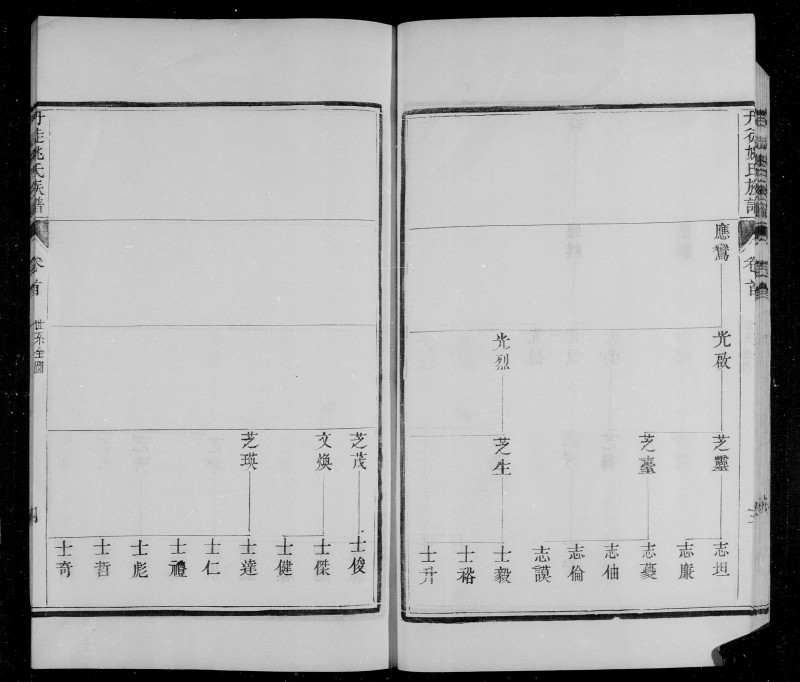 應鸞
光啟
光烈
芝靈
芝臺
芝生
志坦
志廉
志夔
志伷
志倫
志謨
士毅
士裕
士升
丹徒姚氏族譜
卷首
世系全圖
芝茂
文煥
芝瑛
士俊
士傑
士健
士達
士仁
士禮
士彪
士哲
士奇